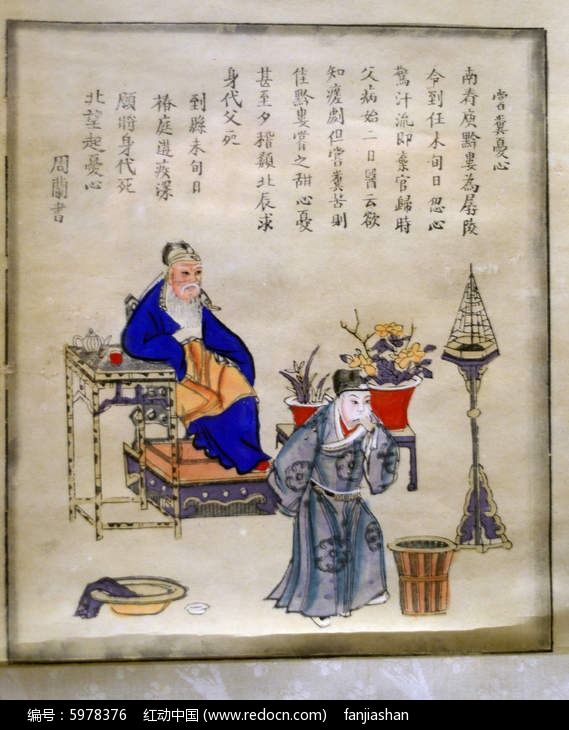 嘗糞憂心
南齊庾黔婁為孱陵
令到任未旬日忽心
驚汗流即棄官歸時
父病始二日醫云欲
知瘥劇但嘗糞苦則
佳黔婁嘗之甜心憂
甚至夕稽顙北辰求
身代父死
到縣未旬日
椿庭遘疾深
願將身代死
北望起憂心
周蘭書
编号：5978376 红动中国 (www.redocn.com) fanjiashan